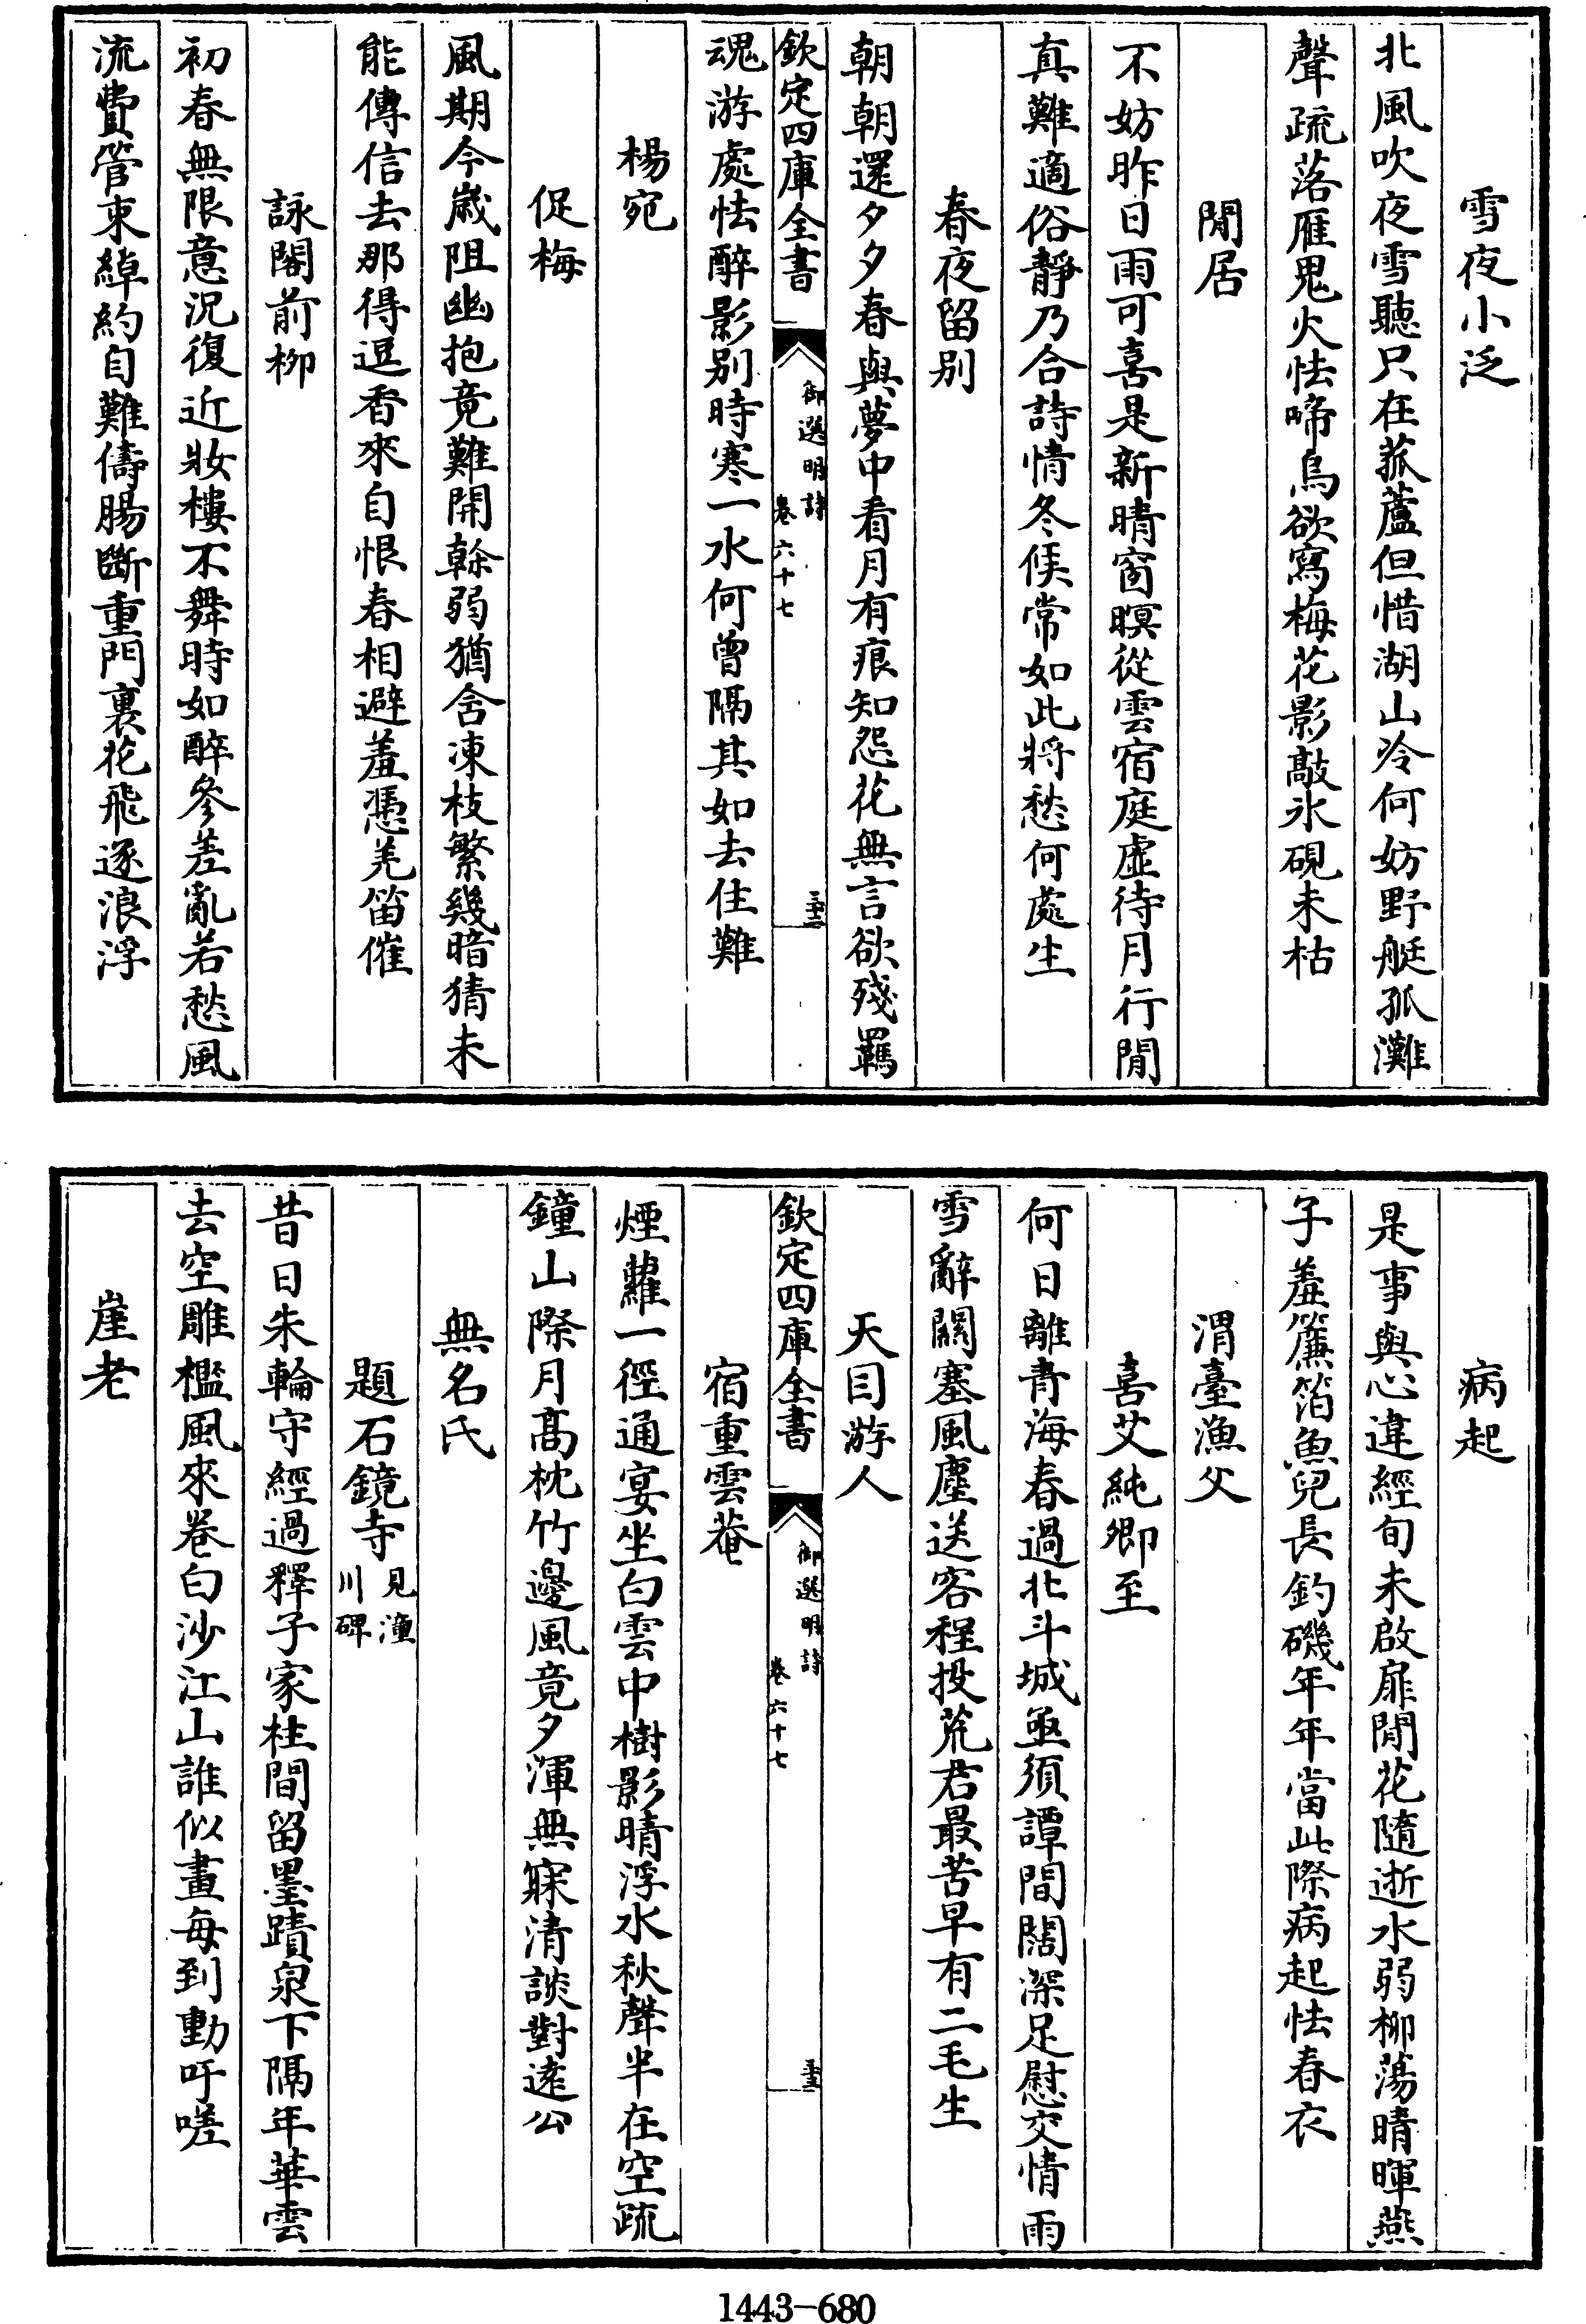 雪夜小泛
北風吹夜雪聽只在菰蘆但惜湖山冷何妨野艇孤灘
聲疏落雁鬼火怯啼烏欲寫梅花影敲氷硯未枯
閒居
不妨昨日雨可喜是新晴窗暝從雲宿庭虛待月行閒
真難適俗靜乃合詩情冬候常如此將愁何處生
春夜留别
朝朝還夕夕春與夢中看月有痕知怨花無言欲殘羈
欽定四庫全書
御選明詩
卷六十七
三十二
魂游處怯醉影别時寒一水何曾隔其如去住難
楊宛
促梅
風期今歲阻幽抱竟難開榦弱猶含凍枝繁幾暗猜未
能傳信去那得逗香來自恨春相避羞憑羌笛催
詠閣前柳
初春無限意況復近妝樓不舞時如醉參差亂若愁風
流費管束綽約自難儔腸斷重門裏花飛逐浪浮
病起
是事與心違經旬未啟扉閒花隨逝水弱柳蕩晴暉燕
子羞簾箔魚兒長釣磯年年當此際病起怯春衣
渭臺漁父
喜艾純卿至
何日離青海春過北斗城亟須譚間闊深足慰交情雨
雪辭關塞風塵送客程投荒君最苦早有二毛生
天目游人
欽定四庫全書
御選明詩
卷六十七
三十三
宿重雲菴
煙蘿一徑通宴坐白雲中樹影晴浮水秋聲半在空疏
鐘山際月髙枕竹邊風竟夕渾無寐清談對遠公
無名氏
題石鏡寺見潼川碑
昔日朱輪守經過釋子家柱間留墨蹟泉下隔年華雲
去空雕檻風來卷白沙江山誰似畫每到動吁嗟
崖老
1443-680